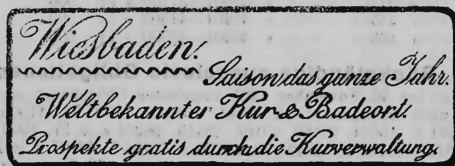 Wiesbaden.
Saison das ganze Jahr.
Weltbekannter Kur- & Badeort.
Prospekte gratis durch die Kurverwaltung.